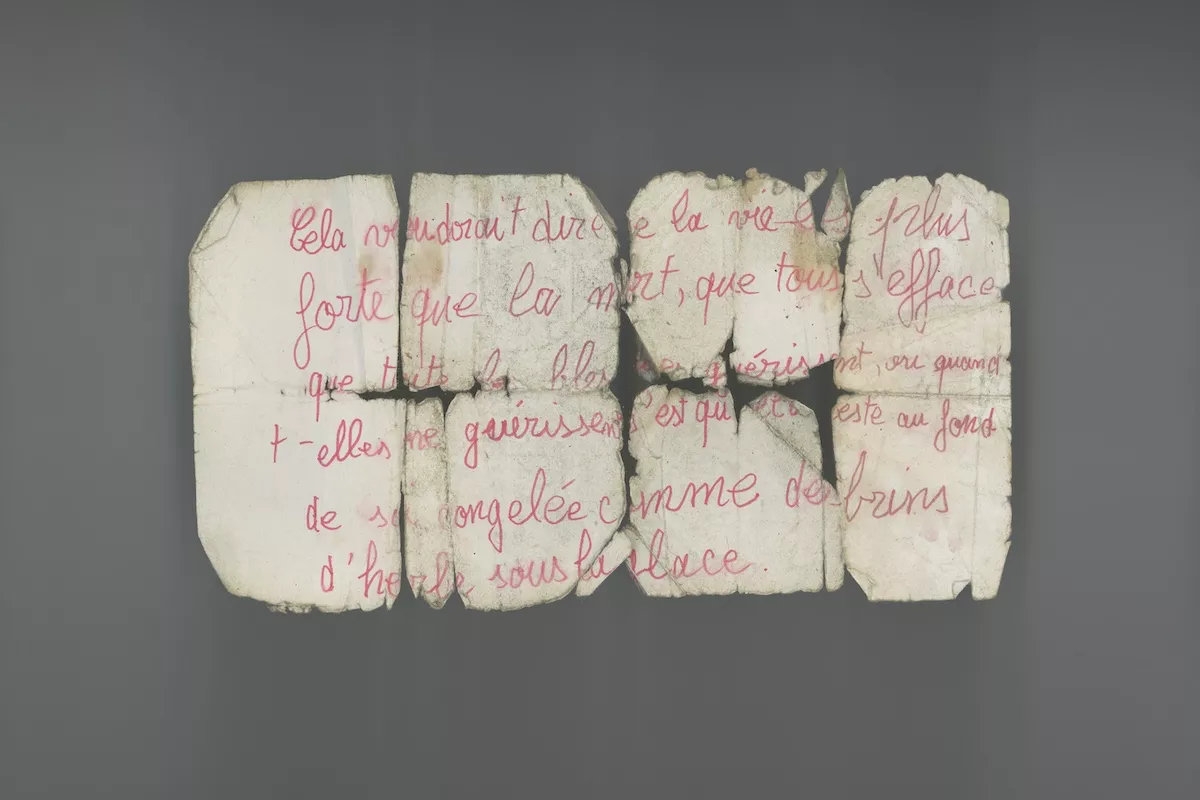 Cela voudorait dire la vie plus
forte que la mort, que tous s'efface
que toute guérissent, ou quand
t-elles ne guérissent s'est qu este au fond
de congelée comme des brins
d'herbe sous la place.